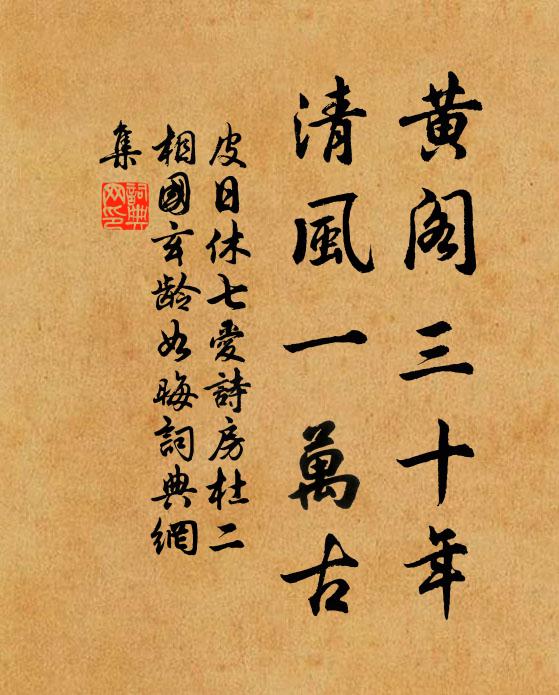 黃閣三十年
清風一萬古
皮日休七愛詩房杜二
相國玄齡如晦詞典網
集
詞典網印